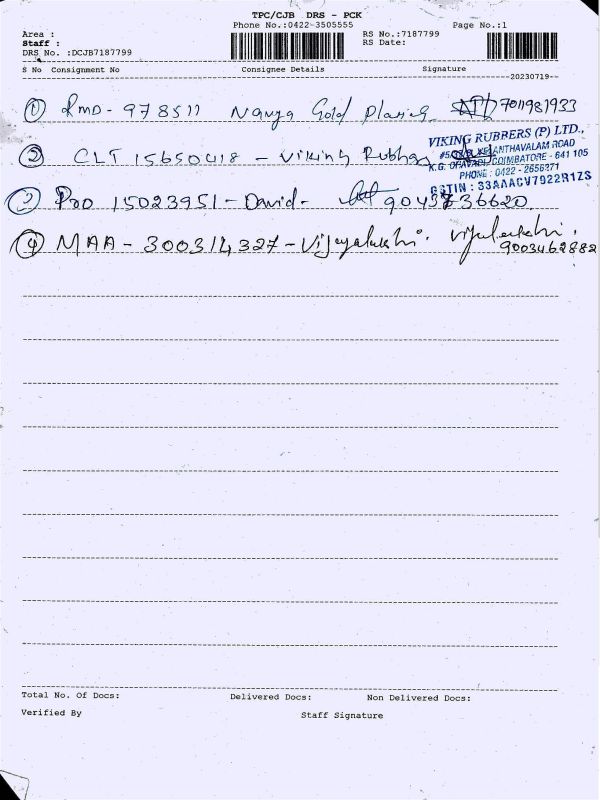 TPC/CJB DRS - PCK
Phone No.:0422-3505555
Page No.:1
Area :
RS No.:7187799
Staff :
RS Date:
DRS No. :DCJB7187799
S No Consignment No Consignee Details Signature
20230719
① RMD - 978511 Nanya Gold Plating 7011981933
② CLT 15650418 - Viking Rubber
VIKING RUBBERS (P) LTD.,
ANTHAVALAM ROAD
COIMBATORE - 641 105
PHONE : 0422 - 2656271
GSTIN : 33AAACV7922R1ZS
③ Pro 15023951 - David -
④ MAA - 300314327 - Vijayalakshi. Vijalakshi.
9003462882
Total No. Of Docs: Delivered Docs: Non Delivered Docs:
Verified By Staff Signature